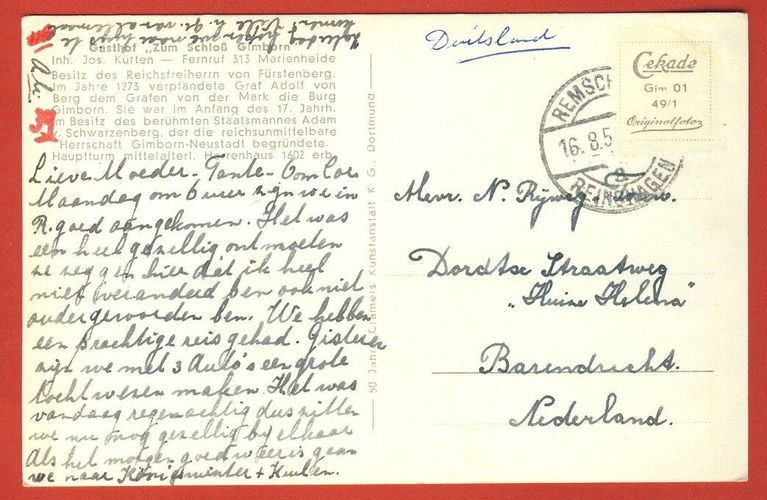 Gasthof „Zum Schloß Gimborn"
Inh. Jos. Kürten — Fernruf 313 Marienheide
Besitz des Reichsfreiherrn von Fürstenberg.
Im Jahre 1273 verpfändete Graf Adolf von
Berg dem Grafen von der Mark die Burg
Gimborn. Sie war im Anfang des 17. Jahrh.
im Besitz des berühmten Staatsmannes Adam
v. Schwarzenberg, der die reichsunmittelbare
Herrschaft Gimborn-Neustadt begründete.
Hauptturm mittelalterl. Herrenhaus 1602 erb.
Lieve Moeder - Tante - Om Cor.
Maandag om 6 uur zijn we in
R. goed aangekomen. Het was
een heel gezellig ontmoeten
ze zeggen hier dat ik heel
niet veranderd ben ook niet
ouder geworden ben. We hebben
een prachtige reis gehad. Gisteren
zijn we met 3 Auto's een grote
tocht wezen maken. Het was
vandaag regenachtig dus zitten
we nu nog gezellig by elkaar
Als het morgen goed weer is gaan
we naar Königswinter + Keulen.
Zaterdag hopen we naar huis te
komen. Vele h. gr. van allemaal
50 Jahre Cramers Kunstanstalt K G., Dortmund
Duitsland
Cekade
Gim 01
49/1
Originalfoto
REMSCH
16. 8. 5
a
REINSHAGEN
Mevr. N.
Dordtse Straatweg
„Huize Helena"
Barendrecht.
Nederland.